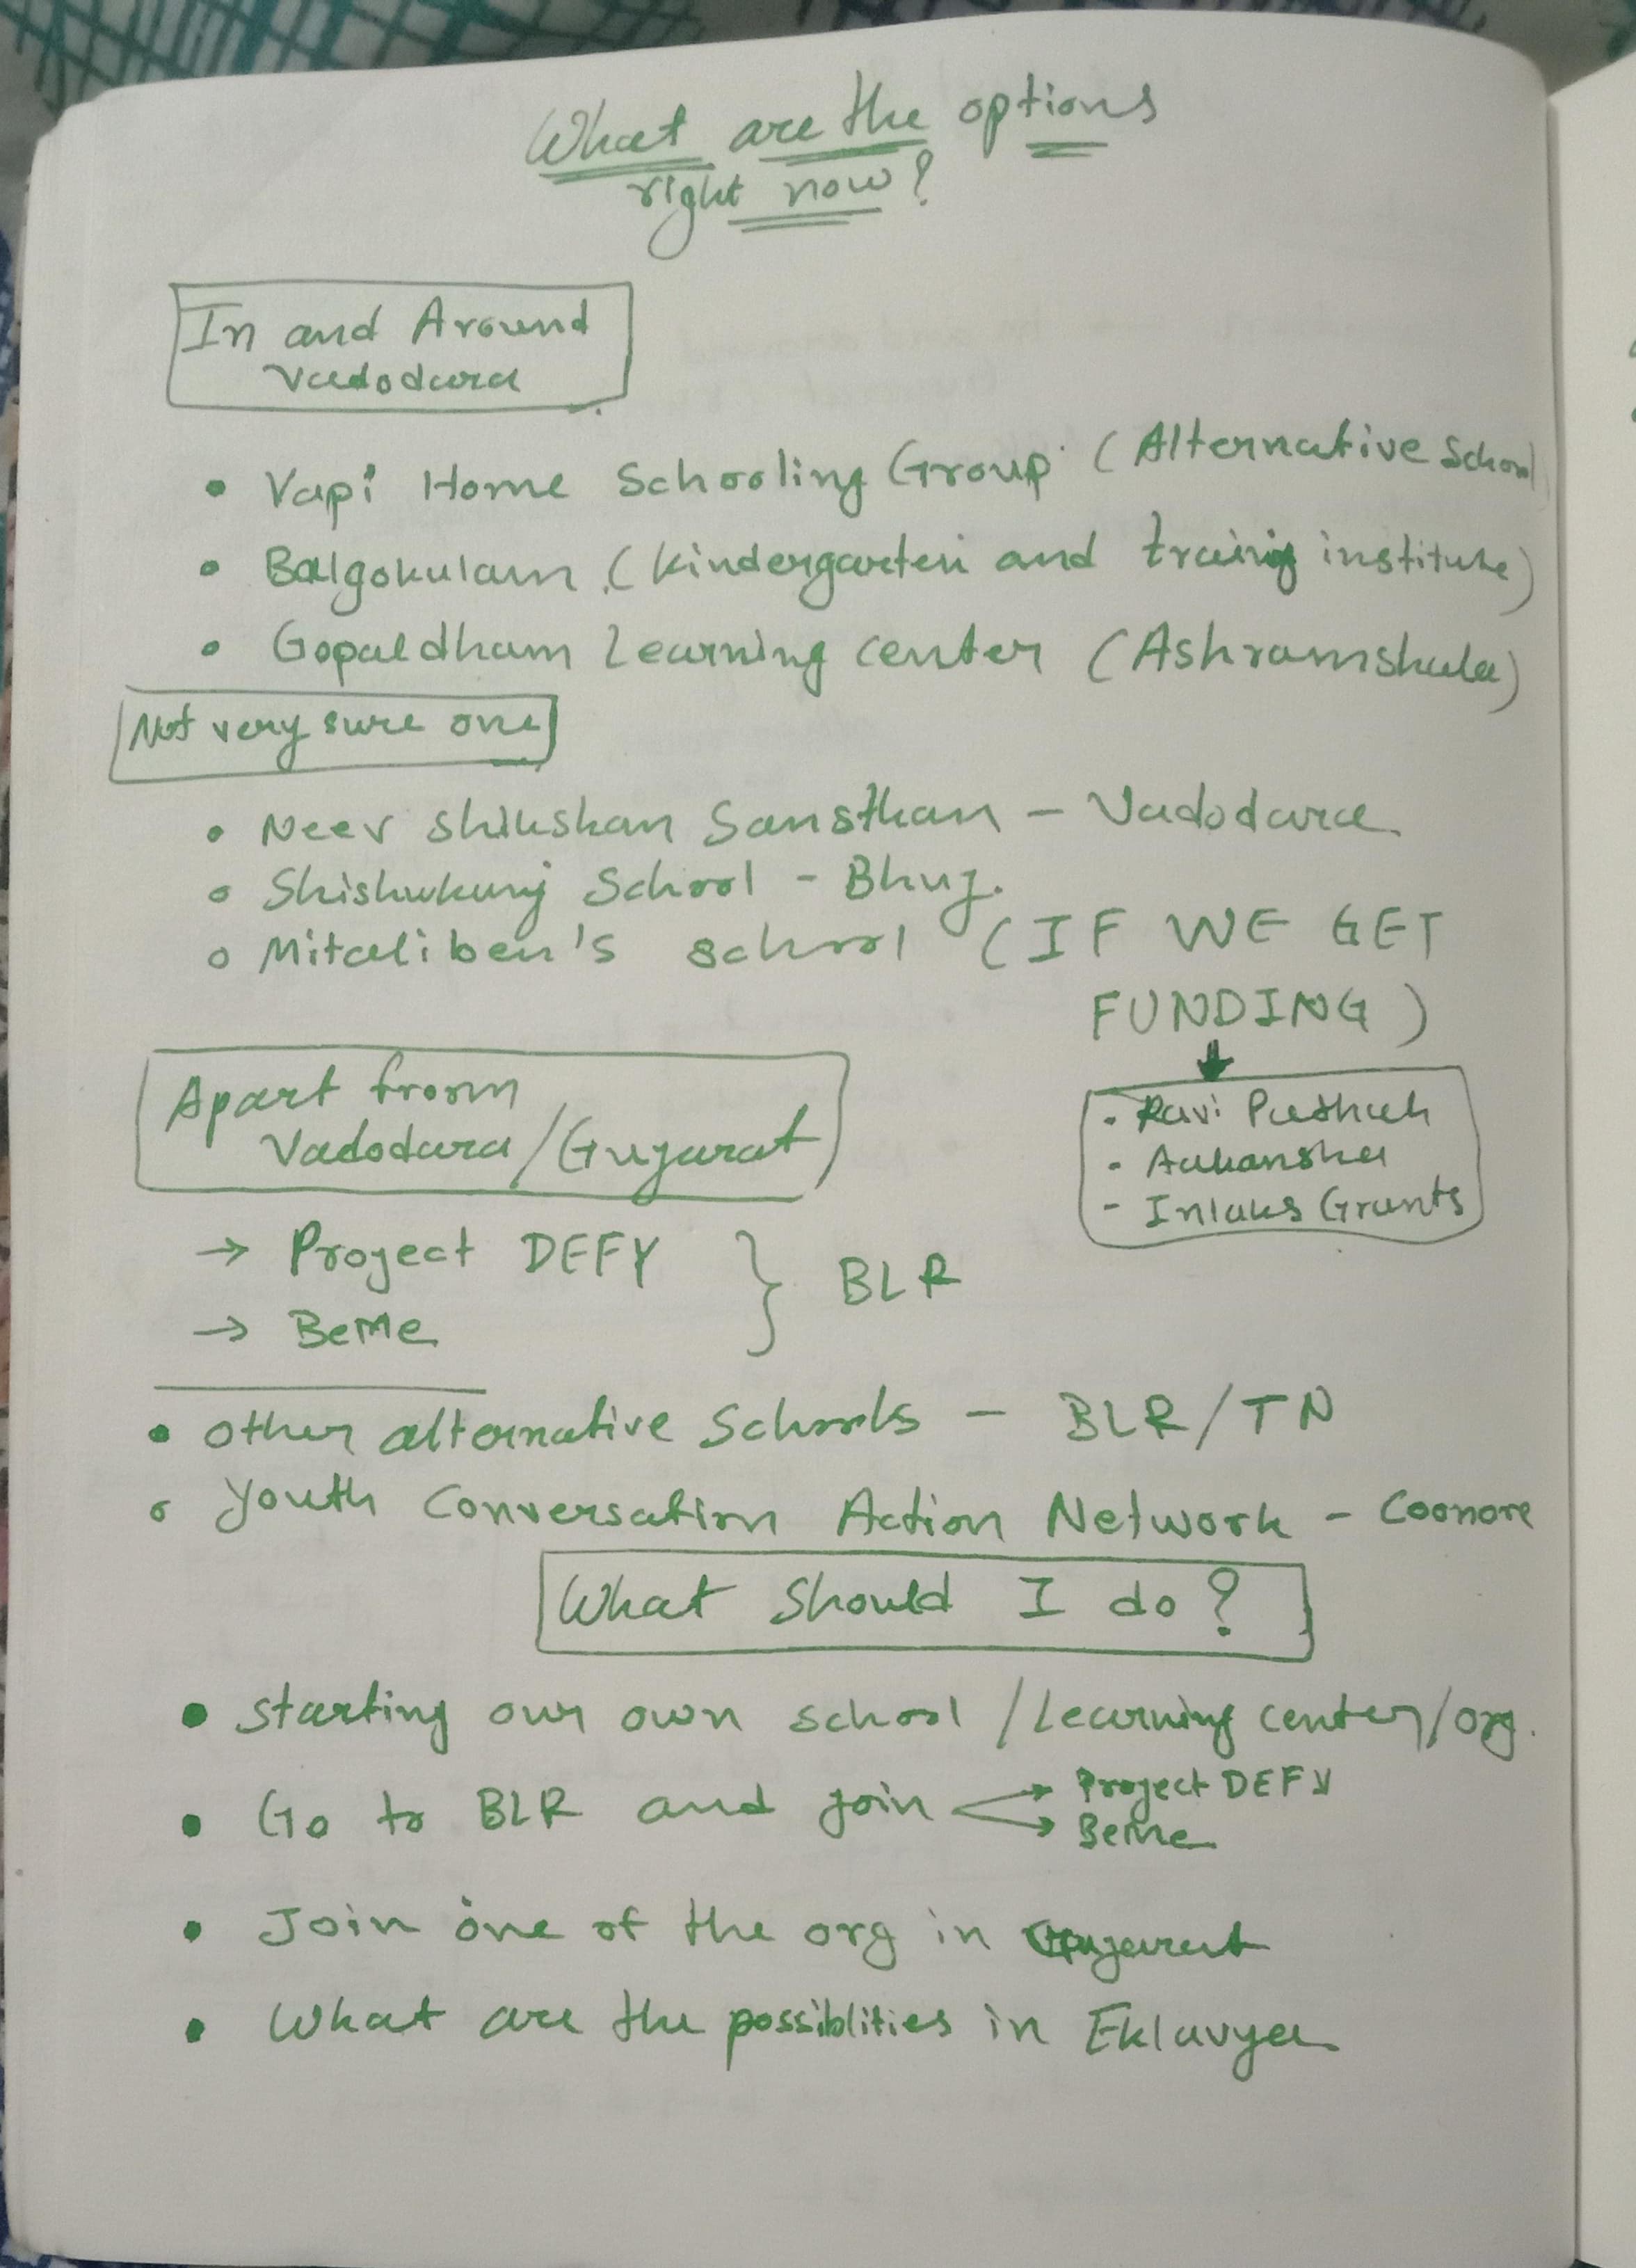 What are the options
right now?
In and Around
Vadodara
• Vapi Home Schooling Group (Alternative School
• Balgokulam (Kindergarten and training institute)
• Gopaldham Learning center (Ashramshala)
Not very sure one
• Neev Shikshan Sansthan – Vadodara
• Shishukunj School – Bhuj.
• Mitaliben's school (IF WE GET
FUNDING)
• Ravi
• Aakansha
- Inlaks Grants
Apart from
Vadodara/Gujarat
→ Project DEFY
→ BeMe
} BLR
• Other alternative Schools – BLR/TN
• Youth Conversation Action Network – Coonore
What Should I do?
• Starting our own school /Learning center/org.
• Go to BLR and join → Project DEFY
→ BeMe
• Join one of the org in Gujarat
• What are the possiblities in Eklavya